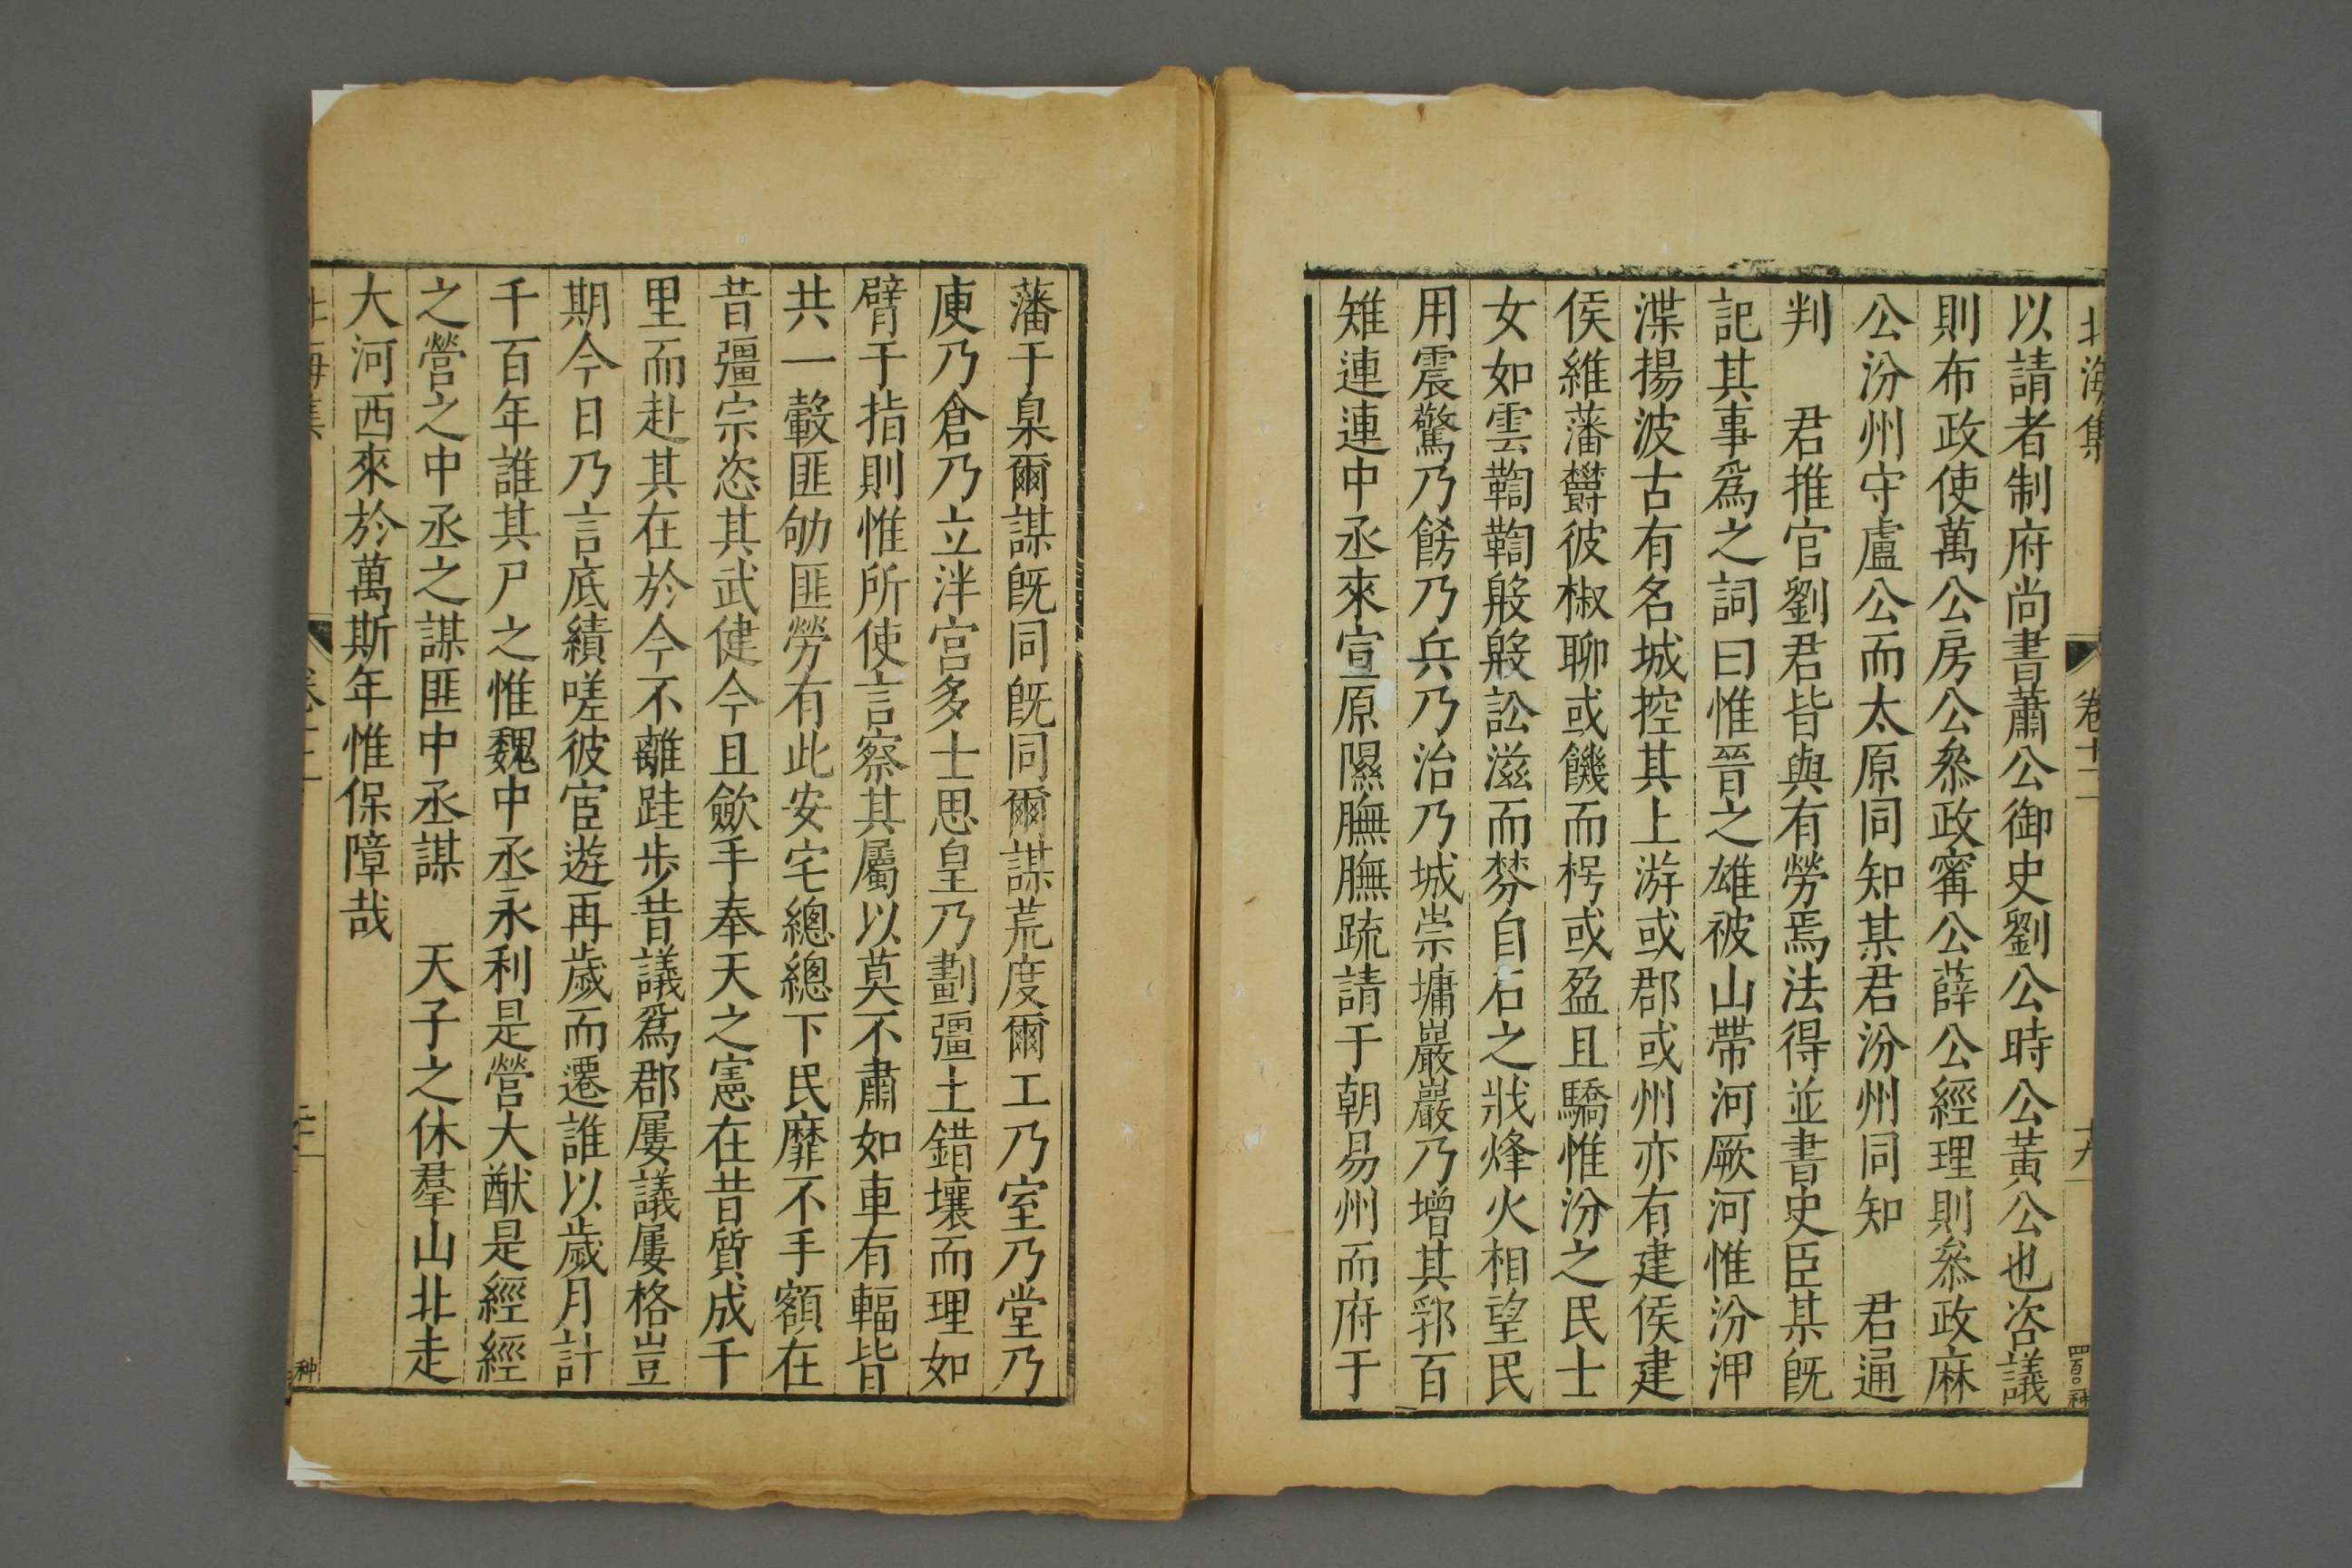 北海集 卷十二 十九
以請者制府尚書蕭公御史劉公時公黃公也咨議
則布政使萬公房公叅政甯公薛公經理則叅政麻
公汾州守盧公而太原同知某君汾州同知 君通
判 君推官劉君皆與有勞焉法得並書史臣某旣
記其事爲之詞曰惟晉之雄被山帶河厥河惟汾浿
渫揚波古有名城控其上游或郡或州亦有建侯建
侯維藩欝彼椒聊或饑而枵或盈且驕惟汾之民士
女如雲鞫鞫殷殷訟滋而棼自石之戕烽火相望民
用震驚乃餝乃兵乃治乃城崇墉巖巖乃增其郛百
雉連連中丞來宣原隰膴膴疏請于朝易州而府于
藩于臬爾謀旣同旣同爾謀荒度爾工乃室乃堂乃
庾乃倉乃立泮宮多士思皇乃劃彊土錯壤而理如
臂于指則惟所使言察其屬以莫不肅如車有輻皆
共一轂匪劬匪勞有此安宅總總下民靡不手額在
昔彊宗恣其武健今且歛手奉天之憲在昔質成千
里而赴其在於今不離跬步昔議爲郡屢議屢格豈
期今日乃言底績嗟彼宦遊再歲而遷誰以歲月計
千百年誰其尸之惟魏中丞永利是營大猷是經經
之營之中丞之謀匪中丞謀 天子之休羣山北走
大河西來於萬斯年惟保障哉